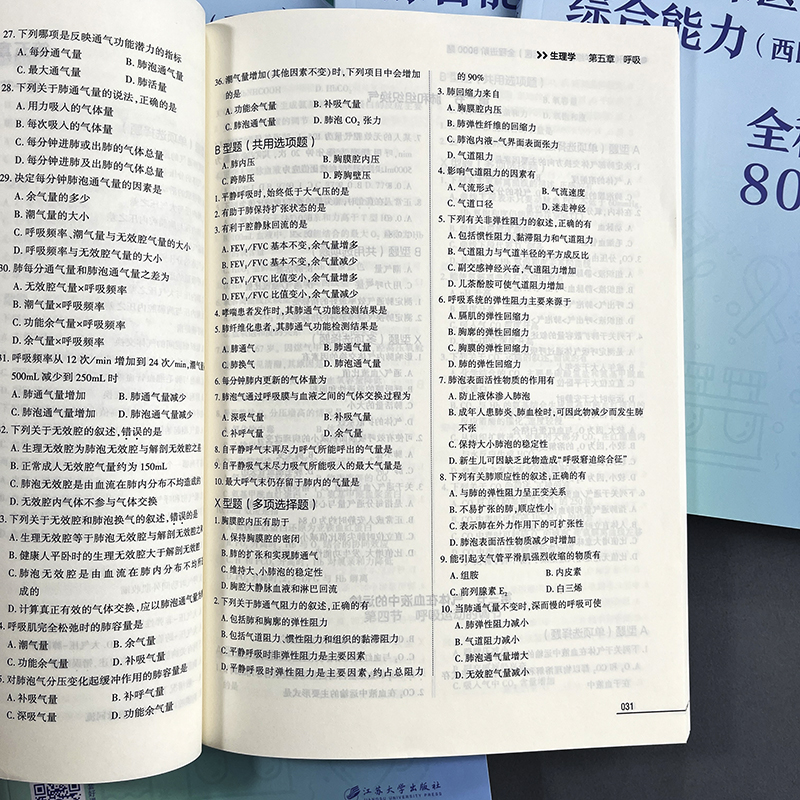 27. 下列哪项是反映通气功能潜力的指标
A. 每分通气量 B. 肺泡通气量
C. 最大通气量 D. 肺活量
28. 下列关于肺通气量的说法,正确的是
A. 用力吸入的气体量
B. 每次吸入的气体量
C. 每分钟进肺或出肺的气体总量
D. 每分钟进肺及出肺的气体总量
29. 决定每分钟肺泡通气量的因素是
A. 余气量的多少
B. 潮气量的大小
C. 呼吸频率、潮气量与无效腔气量的大小
D. 呼吸频率与无效腔气量的大小
30. 肺每分通气量和肺泡通气量之差为
A. 无效腔气量×呼吸频率
B. 潮气量×呼吸频率
C. 功能余气量×呼吸频率
D. 余气量×呼吸频率
31. 呼吸频率从 12 次/min 增加到 24 次/min,潮气量
500mL 减少到 250mL 时
A. 肺通气量增加 B. 肺通气量减少
C. 肺泡通气量增加 D. 肺泡通气量减少
32. 下列关于无效腔的叙述,错误的是
A. 生理无效腔为肺泡无效腔与解剖无效腔之
B. 正常成人无效腔气量约为 150mL
C. 肺泡无效腔是由血流在肺内分布不均造成的
D. 无效腔内气体不参与气体交换
3. 下列关于无效腔和肺泡换气的叙述,错误的是
A. 生理无效腔等于肺泡无效腔与解剖无效腔之
B. 健康人平卧时的生理无效腔大于解剖无效腔
C. 肺泡无效腔是由血流在肺内分布不均所
成的
D. 计算真正有效的气体交换,应以肺泡通气量
4. 呼吸肌完全松弛时的肺容量是
A. 潮气量 B. 余气量
C. 功能余气量 D. 补吸气量
5. 对肺泡气分压变化起缓冲作用的肺容量是
A. 补吸气量 B. 补呼气量
C. 深吸气量 D. 功能余气量
生理学 第五章 呼吸
36. 潮气量增加(其他因素不变)时,下列项目中会增加
的是
A. 功能余气量 B. 补吸气量
C. 肺泡通气量 D. 肺泡 CO₂ 张力
B 型题(共用选项题)
A. 肺内压 B. 胸膜腔内压
C. 跨肺压 D. 跨胸壁压
1. 平静呼吸时,始终低于大气压的是
2. 有助于肺保持扩张状态的是
3. 有利于腔静脉回流的是
A. FEV₁/FVC 基本不变,余气量增多
B. FEV₁/FVC 基本不变,余气量减少
C. FEV₁/FVC 比值变小,余气量增多
D. FEV₁/FVC 比值变小,余气量减少
4. 哮喘患者发作时,其肺通气功能检测结果是
5. 肺纤维化患者,其肺通气功能检测结果是
A. 肺通气 B. 肺通气量
C. 肺换气 D. 肺泡通气量
6. 每分钟肺内更新的气体量为
7. 肺泡气通过呼吸膜与血液之间的气体交换过程为
A. 深吸气量 B. 补吸气量
C. 补呼气量 D. 余气量
8. 自平静呼气末再尽力呼气所能呼出的气量是
9. 自平静吸气末尽力吸气所能吸入的最大气量是
10. 最大呼气末仍存留于肺内的气量是
X 型题(多项选择题)
1. 胸膜腔内压有助于
A. 保持胸膜腔的密闭
B. 肺的扩张和实现肺通气
C. 维持大、小肺泡的稳定性
D. 胸腔大静脉血液和淋巴回流
2. 下列关于肺通气阻力的叙述,正确的有
A. 包括肺和胸廓的弹性阻力
B. 包括气道阻力、惯性阻力和组织的黏滞阻力
C. 平静呼吸时非弹性阻力是主要因素
D. 平静呼吸时弹性阻力是主要因素,约占总阻力
的 90%
3. 肺回缩力来自
A. 胸膜腔内压
B. 肺弹性纤维的回缩力
C. 肺泡内液-气界面表面张力
D. 气道阻力
4. 影响气道阻力的因素有
A. 气流形式 B. 气流速度
C. 气道口径 D. 迷走神经
5. 下列有关非弹性阻力的叙述,正确的有
A. 包括惯性阻力、黏滞阻力和气道阻力
B. 气道阻力与气道半径的平方成反比
C. 副交感神经兴奋,气道阻力增加
D. 儿茶酚胺可使气道阻力增加
6. 呼吸系统的弹性阻力主要来源于
A. 膈肌的弹性回缩力
B. 胸廓的弹性回缩力
C. 胸膜的弹性回缩力
D. 肺的弹性回缩力
7. 肺泡表面活性物质的作用有
A. 防止液体渗入肺泡
B. 成年人患肺炎、肺血栓时,可因此物减少而发生肺
不张
C. 保持大小肺泡的稳定性
D. 新生儿可因缺乏此物造成“呼吸窘迫综合征”
8. 下列有关肺顺应性的叙述,正确的有
A. 与肺的弹性阻力呈正交关系
B. 不易扩张的肺,顺应性小
C. 表示肺在外力作用下的可扩张性
D. 肺泡表面活性物质减少时增加
9. 能引起支气管平滑肌强烈收缩的物质有
A. 组胺 B. 内皮素
C. 前列腺素 E₂ D. 白三烯
10. 当肺通气量不变时,深而慢的呼吸可使
A. 肺弹性阻力减小
B. 气道阻力减小
C. 肺泡通气量增大
D. 无效腔气量减小
031
综合能力(西
全
80
江苏大学出版社